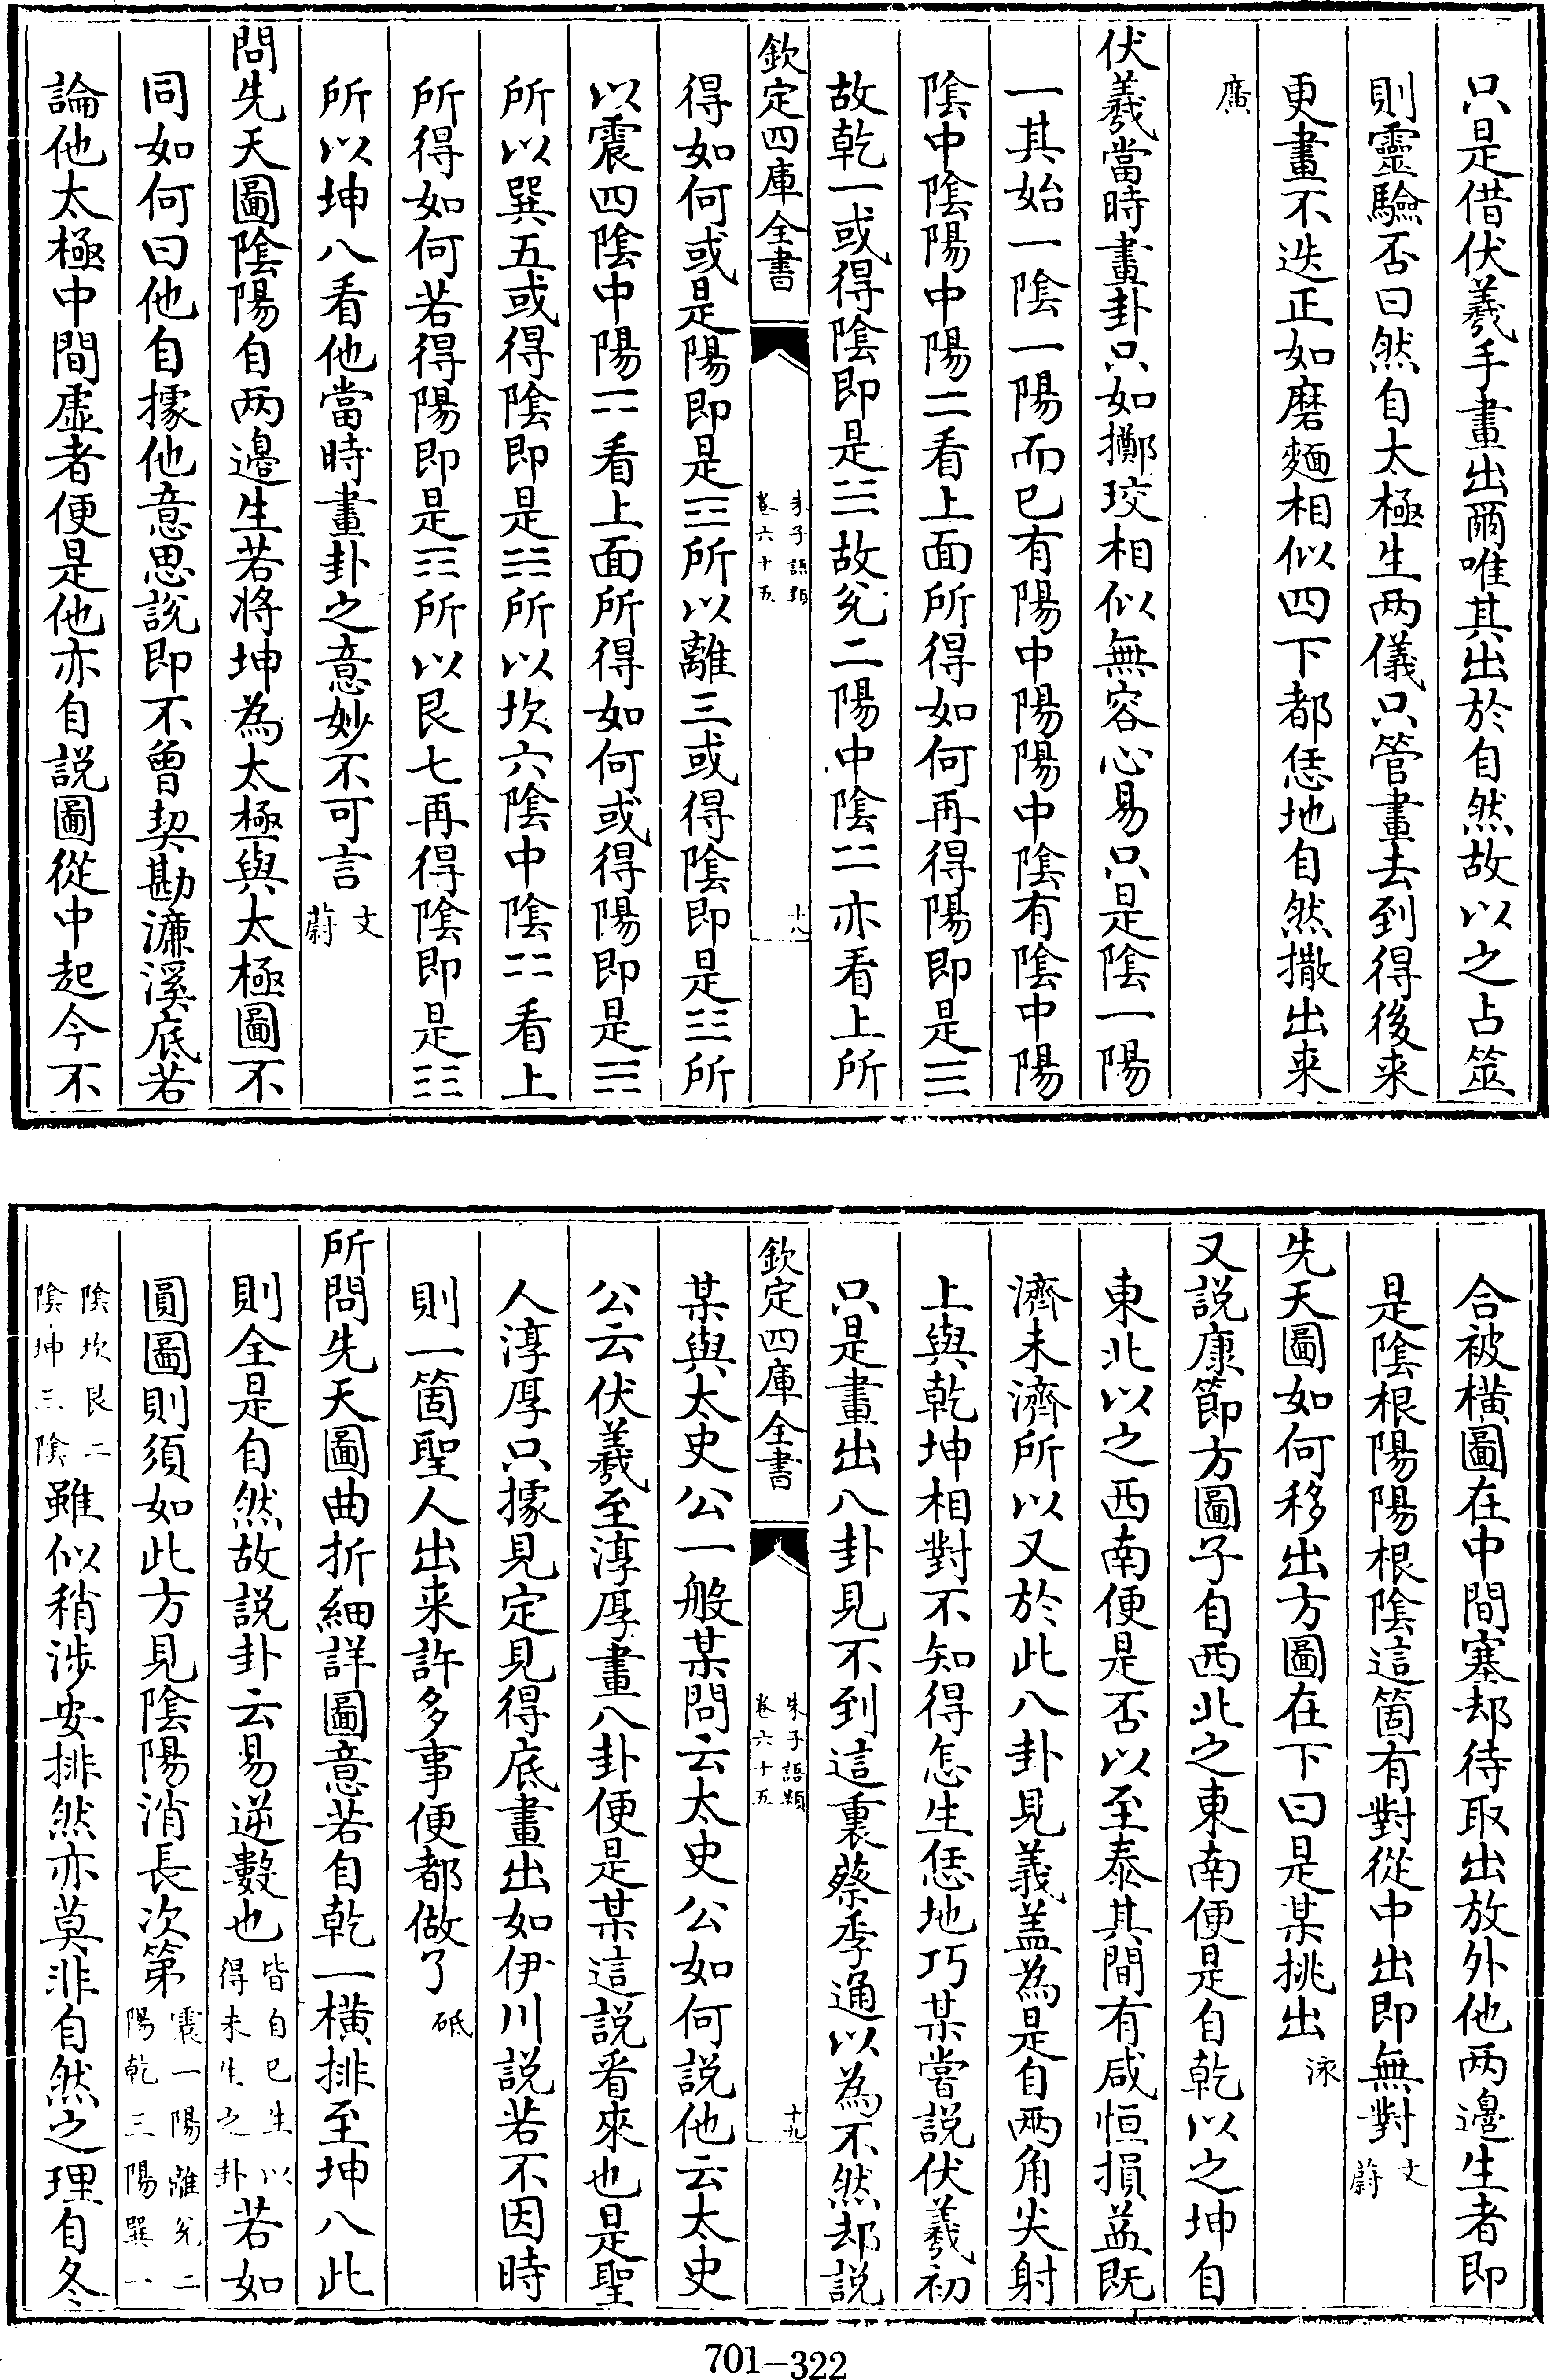 只是借伏羲手畫出爾唯其出於自然故以之占筮
則靈驗否曰然自太極生两儀只管畫去到得後来
更畫不迭正如磨麵相似四下都恁地自然撒出来
廣
伏羲當時畫卦只如擲珓相似無容心易只是陰一陽
一其始一陰一陽而已有陽中陽陽中陰有陰中陽
陰中陰陽中陽⚌看上面所得如何再得陽即是☰
故乾一或得陰即是☱故兊二陽中陰⚍亦看上所
欽定四庫全書
朱子語類
卷六十五
十八
得如何或是陽即是☲所以離三或得陰即是☳所
以震四陰中陽⚎看上面所得如何或得陽即是☴
所以巽五或得陰即是☵所以坎六陰中陰⚏看上
所得如何若得陽即是☶所以艮七再得陰即是☷
所以坤八看他當時畫卦之意妙不可言文蔚
問先天圖陰陽自两邉生若将坤為太極與太極圖不
同如何曰他自據他意思説即不曾契勘濂溪底若
論他太極中間虚者便是他亦自説圖從中起今不
合被横圖在中間塞却待取出放外他两邉生者即
是陰根陽陽根陰這箇有對從中出即無對文蔚
先天圖如何移出方圖在下曰是某挑出泳
又説康節方圖子自西北之東南便是自乾以之坤自
東北以之西南便是否以至泰其間有咸恒損益既
濟未濟所以又於此八卦見義盖為是自两角尖射
上與乾坤相對不知得怎生恁地巧某嘗説伏羲初
只是畫出八卦見不到這裏蔡季通以為不然却説
欽定四庫全書
朱子語類
卷六十五
十九
某與太史公一般某問云太史公如何説他云太史
公云伏羲至淳厚畫八卦便是某這説看來也是聖
人淳厚只據見定見得底畫出如伊川説若不因時
則一箇聖人出来許多事便都做了砥
所問先天圖曲折細詳圖意若自乾一横排至坤八此
則全是自然故説卦云易逆數也皆自已生以得未生之卦若如
圓圖則須如此方見陰陽消長次第震一陽離兊二陽乾三陽巽一
陰坎艮二陰坤三陰雖似稍渉安排然亦莫非自然之理自冬
701-322